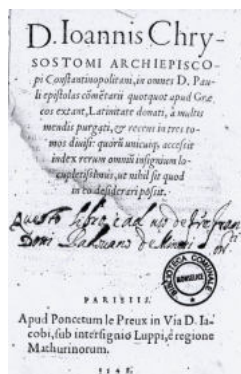 D. Ioannis Chry-
SOSTOMI ARCHIEPISCO-
pi Constantinopolitani, in omnes D. Pau-
li epistolas cōmētarii quotquot apud Græ
cos extant, Latinitate donati, a multis
mendis purgati, & recens in tres to-
mos diuisi: quorū unicuiq; accessit
index rerum omniū insignium lo-
cupletissimus, ut nihil sit quod
in eo desiderari possit.
Questo libro è ad uso de
PARISIIS
Apud Poncetum le Preux in Via D. Ia-
cobi, sub intersignio Luppi, è regione
Mathurinorum.
BIBLIOTECA COMUNALE